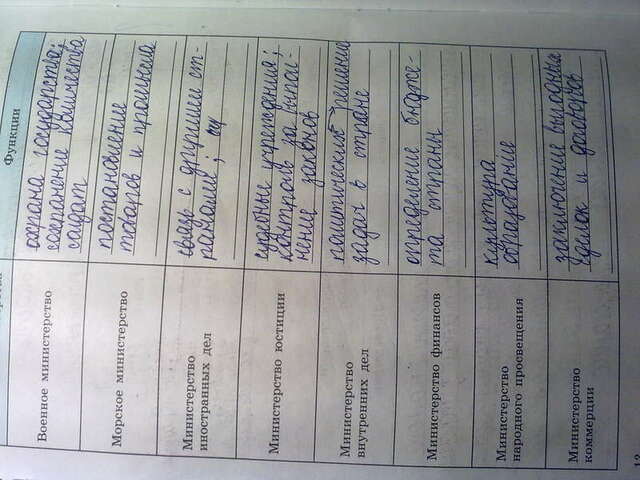 Функции
Военное министерство
охрана государства;
сохранение количества
солдат
Морское министерство
постановление
товаров и
Министерство
иностранных дел
связь с другими ст-
ранами;
Министерство юстиции
судебные учреждения;
контроль за выпол-
нение законов
Министерство
внутренних дел
политических решение
задач в стране
Министерство финансов
определение бюдже-
та страны
Министерство
народного просвещения
культура
образование
Министерство
коммерции
заключение выгодных
сделок и договоров
13